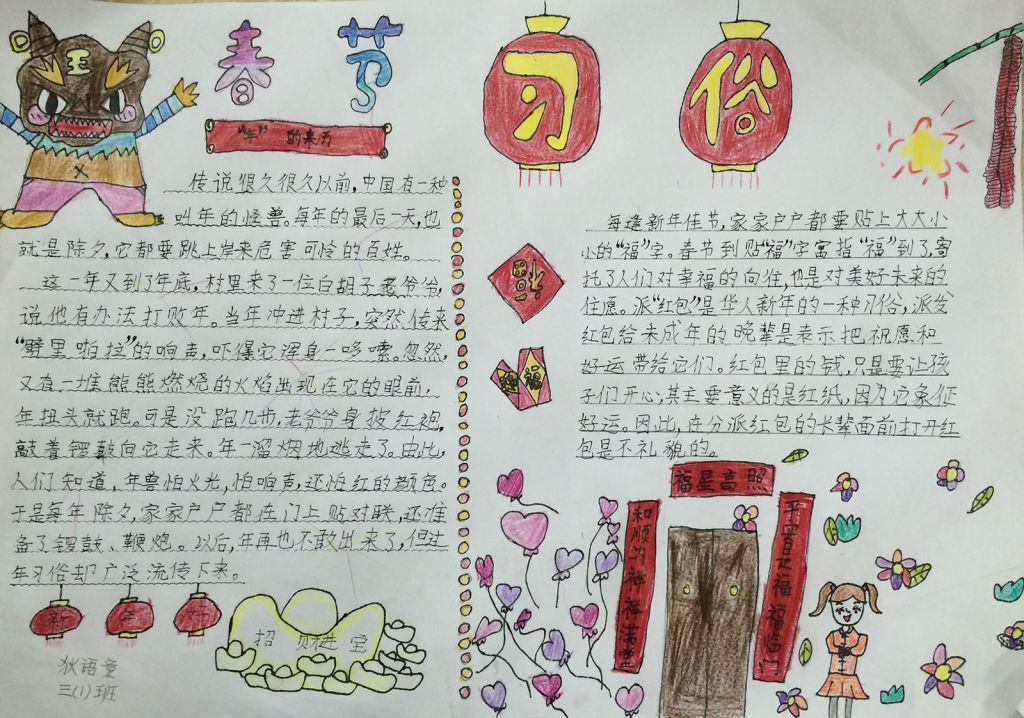 春节
习俗
"年"的来历
传说很久很久以前,中国有一种
叫年的怪兽。每年的最后一天,也
就是除夕,它都要跳上岸来危害可怜的百姓。
这一年又到了年底,村里来了一位白胡子老爷爷,
说他有办法打败年。当年冲进村子,突然传来
“劈里啪拉”的响声,吓得它浑身一哆嗦。忽然,
又有一堆熊熊燃烧的火焰出现在它的眼前,
年扭头就跑。可是没跑几步,老爷爷身披红袍,
敲着锣鼓向它走来。年一溜烟地逃走了。由此,
人们知道,年兽怕火光,怕响声,还怕红的颜色。
于是每年除夕,家家户户都在门上贴对联,还准
备了锣鼓、鞭炮。以后,年再也不敢出来了,但过
年习俗却广泛流传下来。
新年好
招财进宝
狄语童
三(1)班
每逢新年佳节,家家户户都要贴上大大小
小的“福”字。春节到贴“福”字富指“福”到了,寄
托了人们对幸福的向往,也是对美好未来的
住愿。派“红包”是华人新年的一种习俗,派发
红包给未成年的晚辈是表示把祝愿和
好运带给它们。红包里的钱,只是要让孩
子们开心,其主要意义的是红纸,因为它象征
好运。因此,在分派红包的长辈面前打开红
包是不礼貌的。
福
福
福星高照
和顺为祥祥满堂
平安是福福临门
王